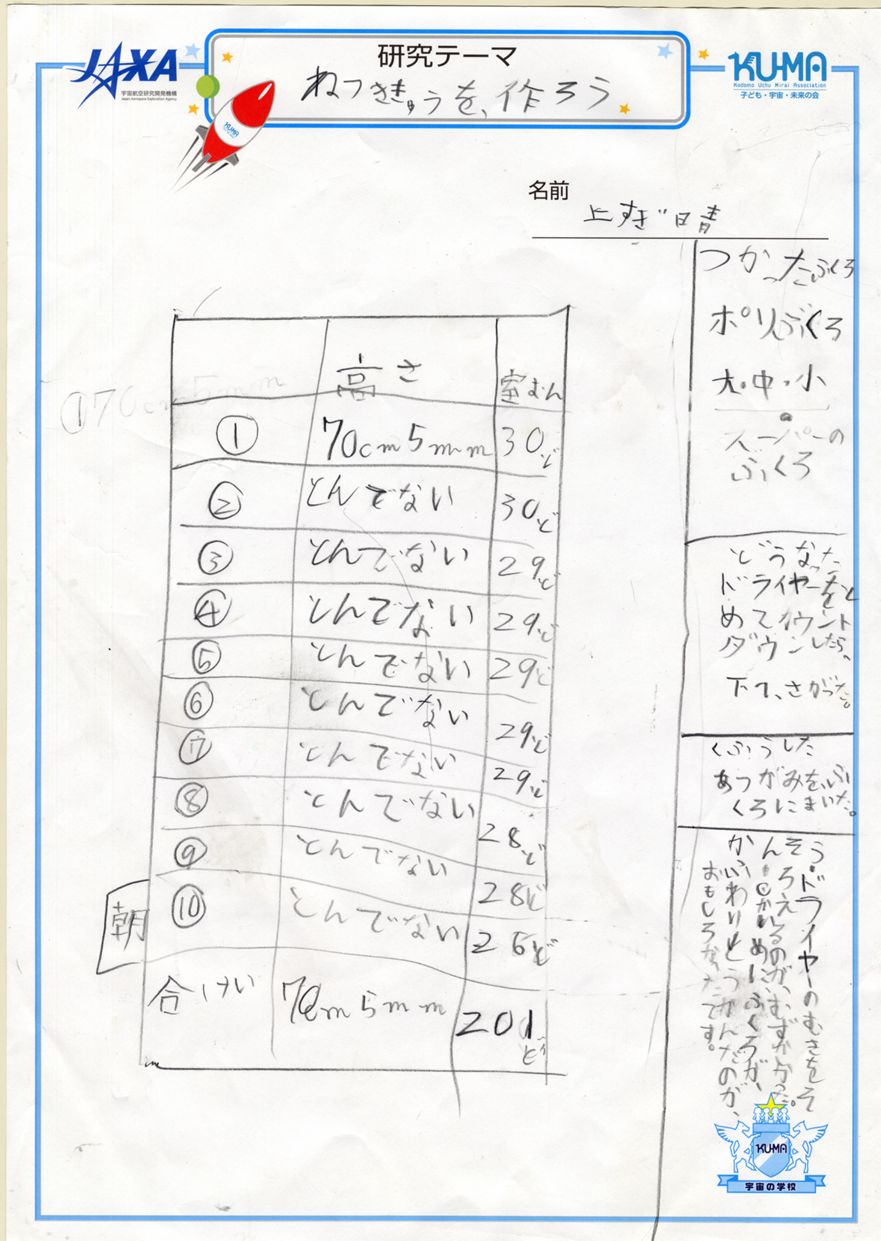 JAXA
宇宙航空研究開発機構
Japan Aerospace Exploration Agency
研究テーマ
ねつききゅうを、作ろう
KU-MA
Kodomo Uchu Mirai Association
子ども・宇宙・未来の会
KU-MA
名前
上すぎ 日青
高さ 室おん
①70cm5mm
① 70cm5mm 30ど
② とんでない 30ど
③ とんでない 29ど
④ とんでない 29ど
⑤ とんでない 29ど
⑥ とんでない 29ど
⑦ とんでない 29ど
⑧ とんでない 28ど
⑨ とんでない 28ど
朝
⑩ とんでない 26ど
合けい 70m5mm 201ど
つかったふくろ
ポリぶくろ
大・中・小
スーパーの
ぶくろ
どうなった
ドライヤーをと
めてカウント
ダウンしたら、
下て、さがった。
くふうした
あつがみを、ふ
くろにまいた。
う・ドライヤーのむきをそ
そろえるのが、むずかしかった。
ん
めに、ふくろが、
かふわりとうかんだのが、
おもしろかったです。
KU-MA
宇宙の学校